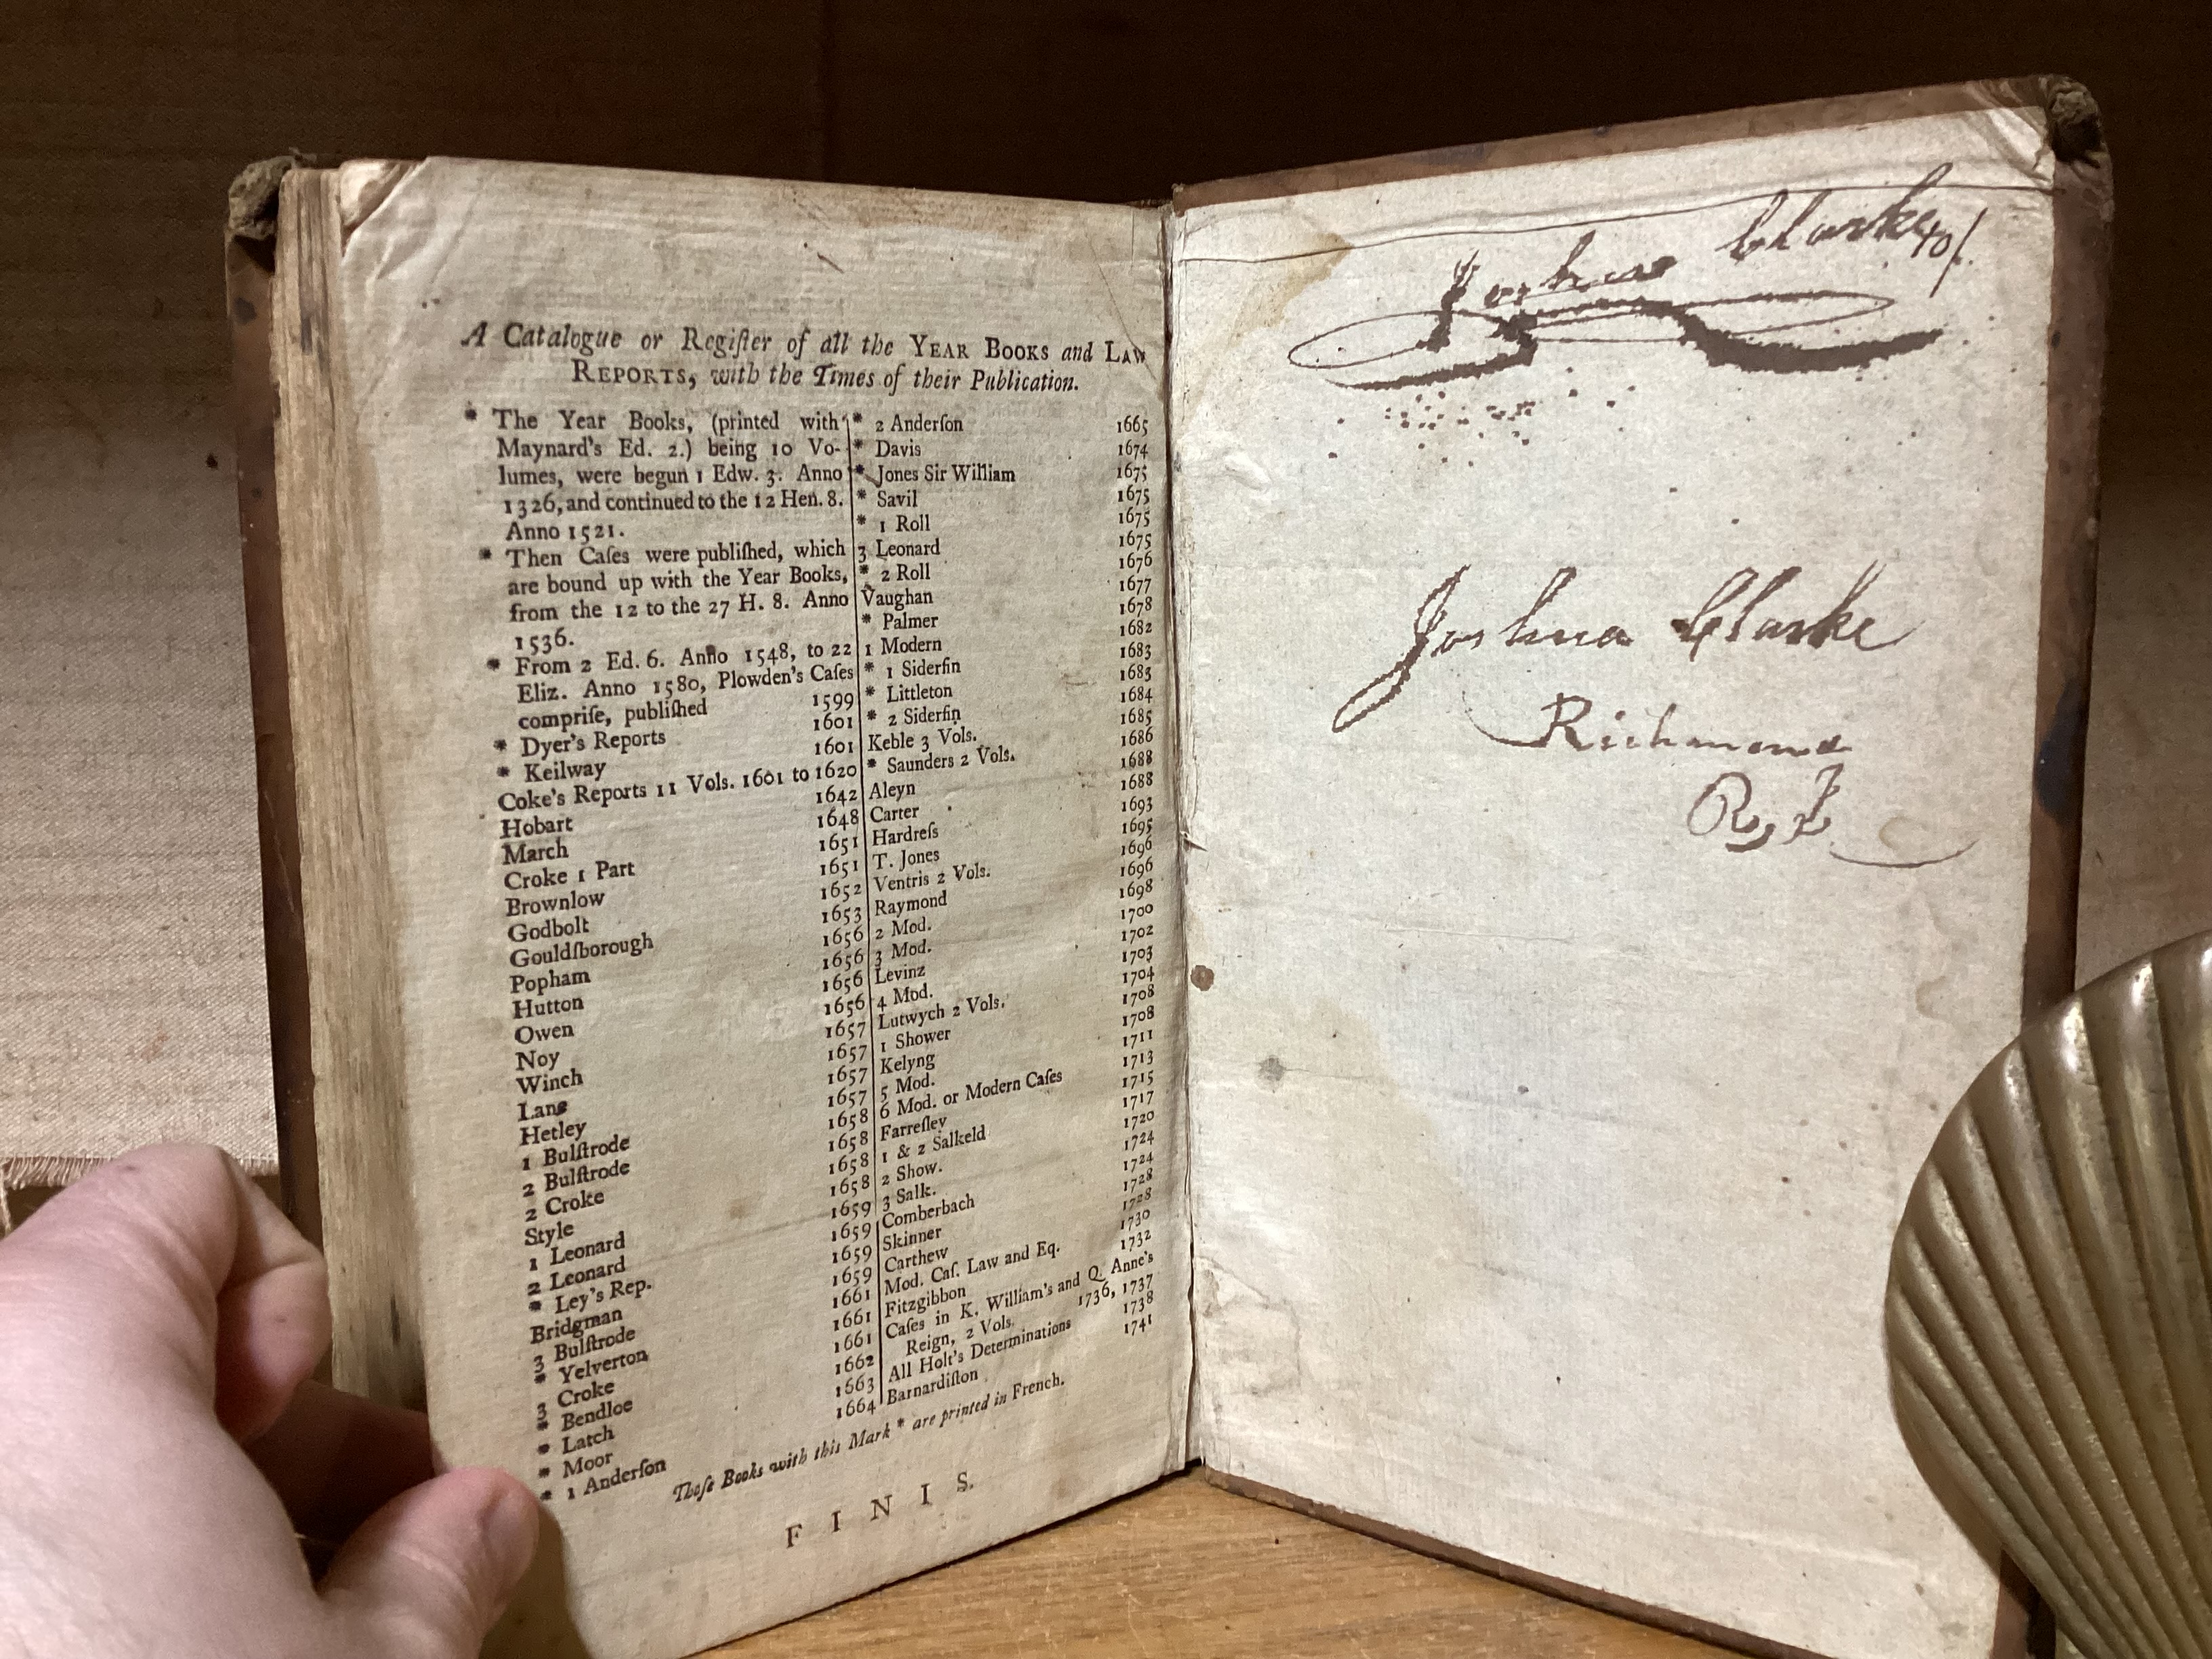 A Catalogue or Regiſter of all the YEAR BOOKS and LAW
REPORTS, with the Times of their Publication.
* The Year Books, (printed with
Maynard's Ed. 2.) being 10 Vo-
lumes, were begun 1 Edw. 3. Anno
1326, and continued to the 12 Hen. 8.
Anno 1521.
* Then Caſes were publiſhed, which
are bound up with the Year Books,
from the 12 to the 27 H. 8. Anno
1536.
* From 2 Ed. 6. Anno 1548, to 22
Eliz. Anno 1580, Plowden's Caſes
compriſe, publiſhed 1599
* Dyer's Reports 1601
* Keilway 1601
Coke's Reports 11 Vols. 1601 to 1620
Hobart 1642
March 1648
Croke 1 Part 1651
Brownlow 1651
Godbolt 1652
Gouldſborough 1653
Popham 1656
Hutton 1656
Owen 1656
Noy 1656
Winch 1657
Lane 1657
Hetley 1657
1 Bulſtrode 1657
2 Bulſtrode 1658
2 Croke 1658
Style 1658
1 Leonard 1658
2 Leonard 1659
* Ley's Rep. 1659
Bridgman 1659
3 Bulſtrode 1659
* Yelverton 1661
3 Croke 1661
* Bendloe 1661
* Latch 1662
* Moor 1663
* 1 Anderſon 1664
* 2 Anderſon 1665
* Davis 1674
* Jones Sir William 1675
* Savil 1675
* 1 Roll 1675
3 Leonard 1675
* 2 Roll 1676
Vaughan 1677
* Palmer 1678
1 Modern 1682
* 1 Siderfin 1683
* Littleton 1683
* 2 Siderfin 1684
Keble 3 Vols. 1685
* Saunders 2 Vols. 1686
Aleyn 1688
Carter 1688
Hardreſs 1693
T. Jones 1695
Ventris 2 Vols. 1696
Raymond 1696
2 Mod. 1698
3 Mod. 1700
Levinz 1702
4 Mod. 1703
Lutwych 2 Vols. 1704
1 Shower 1708
Kelyng 1708
5 Mod. 1711
6 Mod. or Modern Caſes 1713
Farreſley 1715
1 & 2 Salkeld 1717
2 Show. 1720
3 Salk. 1724
Comberbach 1724
Skinner 1728
Carthew 1728
Mod. Caſ. Law and Eq. 1730
Fitzgibbon 1732
Caſes in K. William's and Q. Anne's
Reign, 2 Vols. 1736, 1737
All Holt's Determinations 1738
Barnardiſton 1741
Thoſe Books with this Mark * are printed in French.
FINIS.
Joshua Clarke 40/
Joshua Clarke
Richmond
R, I